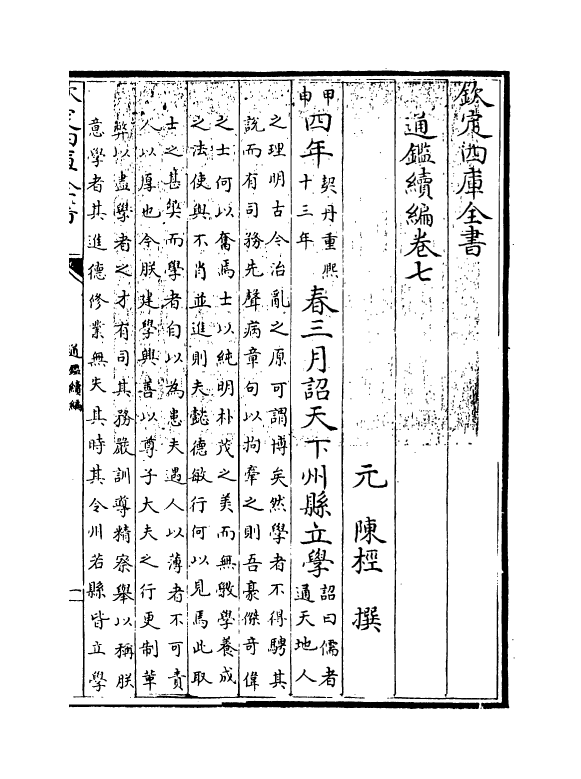 欽定四庫全書
通鑑續編卷七
元 陳桱 撰
甲申
四年
契丹重熙
十三年
春三月詔天下州縣立學
詔曰儒者
通天地人
之理明古今治亂之原可謂博矣然學者不得騁其
說而有司務先聲病章句以拘牽之則吾豪傑奇偉
之士何以奮焉士以純明朴茂之美而無斆學養成
之法使與不肖並進則夫懿德敏行何以見焉此取
士之甚弊而學者自以為患夫遇人以薄者不可責
人以厚也今朕建學興善以尊子大夫之行更制革
弊以盡學者之才有司其務嚴訓導精察舉以稱朕
意學者其進德修業無失其時其令州若縣皆立學
欽定四庫全書
通鑑續編
一